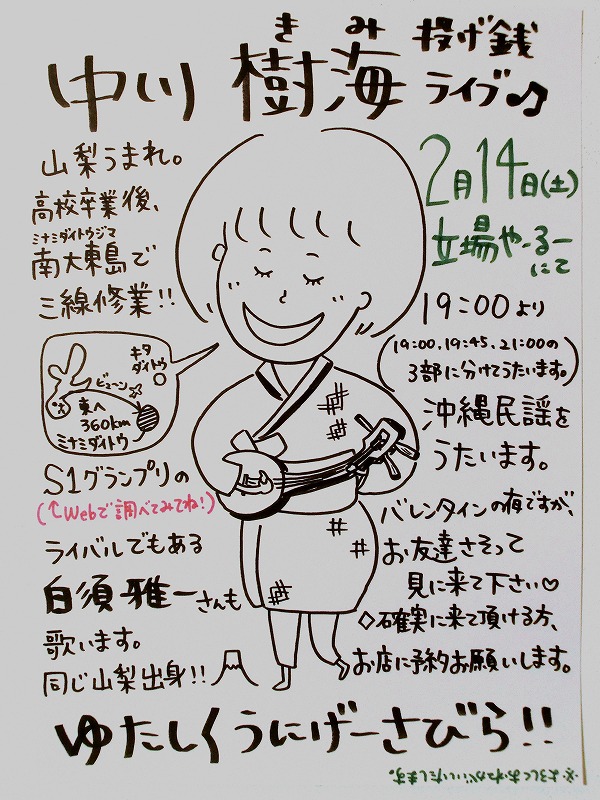 きみ
中川 樹海 投げ銭
ライブ♫
山梨うまれ。
高校卒業後、
ミナミダイトウジマ
南大東島で
三線修業!!
キタ
ダイトウ
ビューン
東へ
360km
ミナミダイトウ
S1グランプリの
(↑Webで調べてみてね!)
ライバルでもある
白須雅一さんも
歌います。
同じ山梨出身!!
2月14日(土)
立場や-るー
にて
19:00より
(19:00、19:45、21:00の
3部に分けてうたいます。)
沖縄民謡を
うたいます。
バレンタインの夜ですが、
お友達さそって
見に来て下さい♡
◇確実に来て頂ける方、
お店に予約お願いします。
ゆたしくうにげーさびら!!
※よろしくおねがいいたします。